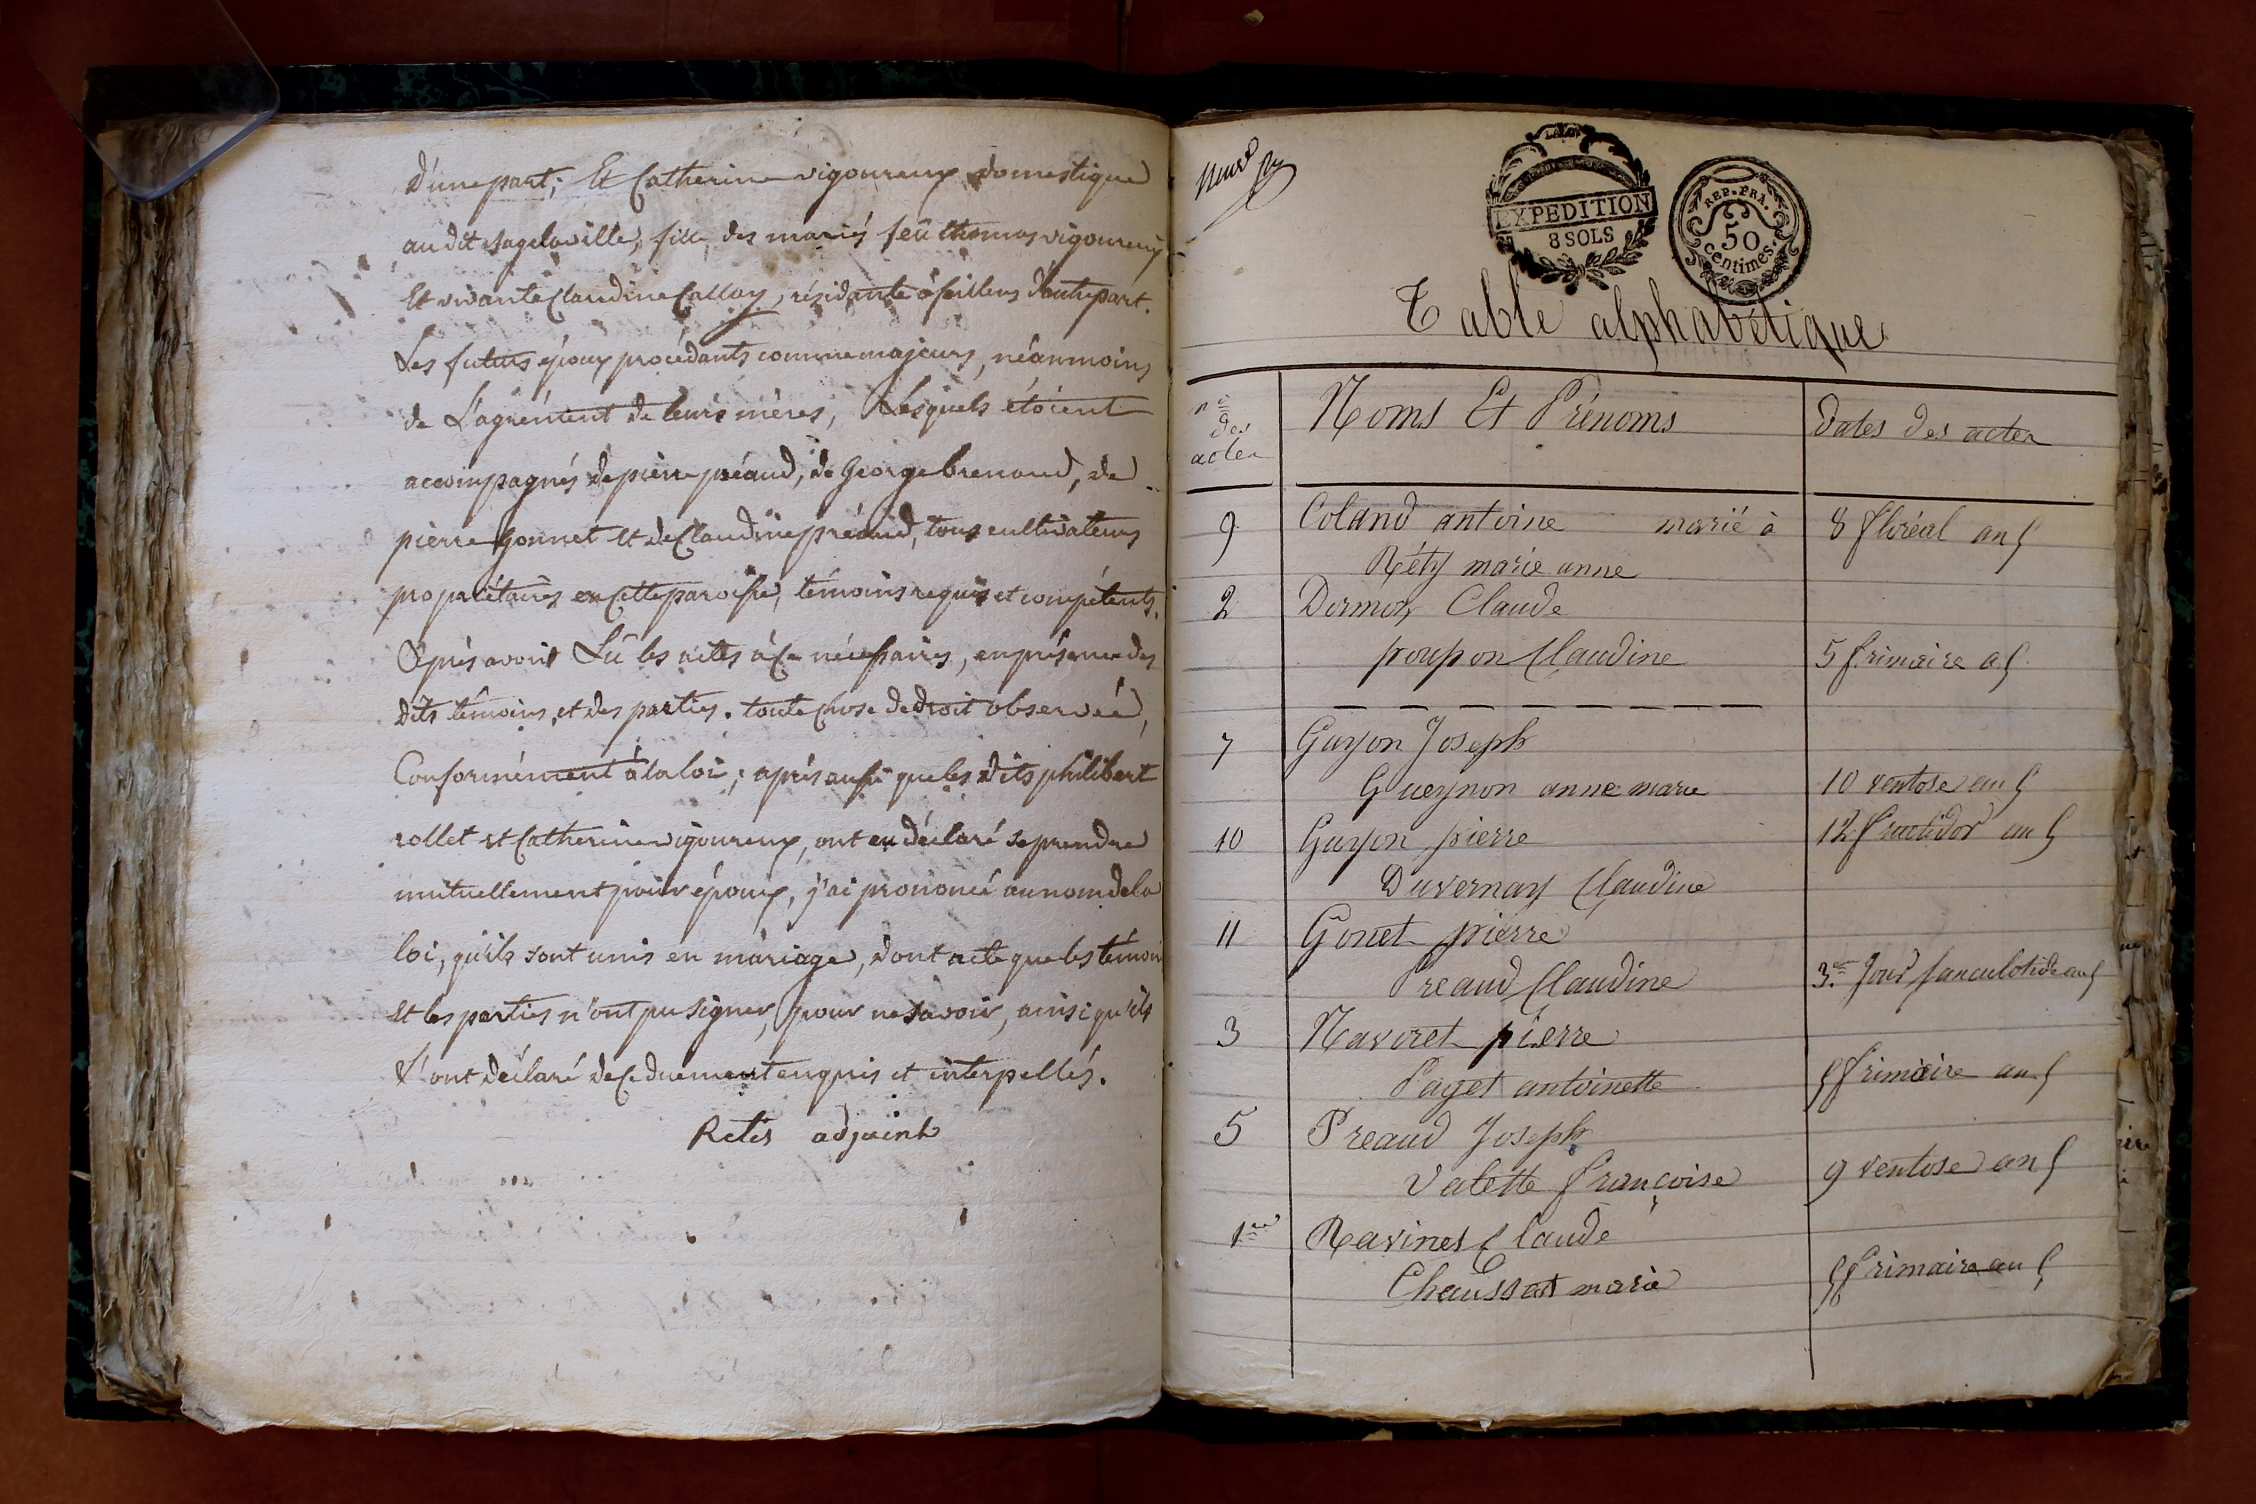 d'une part; Et Catherine vigoureux domestique
au dit sagelaville, fille des mariés feû thomas vigoureux
Et vivante Claudine Callay, résidante à feillens d'autre part.
Les futurs époux procédants comme majeurs, néanmoins
de L'agrément de leurs mères, Lesquels étoient
accompagnés de pierre préaud, de George brenaud, de
pierre gonnet et de Claudine préaud, tous cultivateurs
propriétaires en cette paroisse, témoins requis et compétents.
Après avoir Lû les actes à ce nécessaires, en présence des
dits témoins, et des parties. toute chose de droit observée,
Conformément à la loi; après aussi que les dits philibert
rollet et Catherine vigoureux, ont eu déclaré se prendre
mutuellement pour époux, j'ai prononcé au nom de la
loi, qu'ils sont unis en mariage, dont acte que les témoins
et les parties n'ont pu signer, pour ne savoir, ainsi qu'ils
L'ont déclaré de ce duement enquis et interpellés.
Retis adjoint
EXPEDITION
8 SOLS
REP. FRA.
50
centimes.
Table alphabétique
n.o des actes
Noms Et Prénoms
Dates des actes
9 Coland antoine marié à 8 floréal an 5
Réty marie anne
2 Dormoy Claude
poupon Claudine 5 frimaire a 5
7 Guyon Joseph
Gueynon anne marie 10 ventose an 5
10 Guyon pierre 12 fructidor an 5
Duvernay Claudine
11 Gonet pierre
Preaud Claudine 3.e Jour sanculotide an 5
3 Navoret pierre
Paget antoinette 5 frimaire an 5
5 Preaud Joseph
Valette françoise 9 ventose an 5
1.er Ravinet Claude
Chaussat marie 5 frimaire an 5